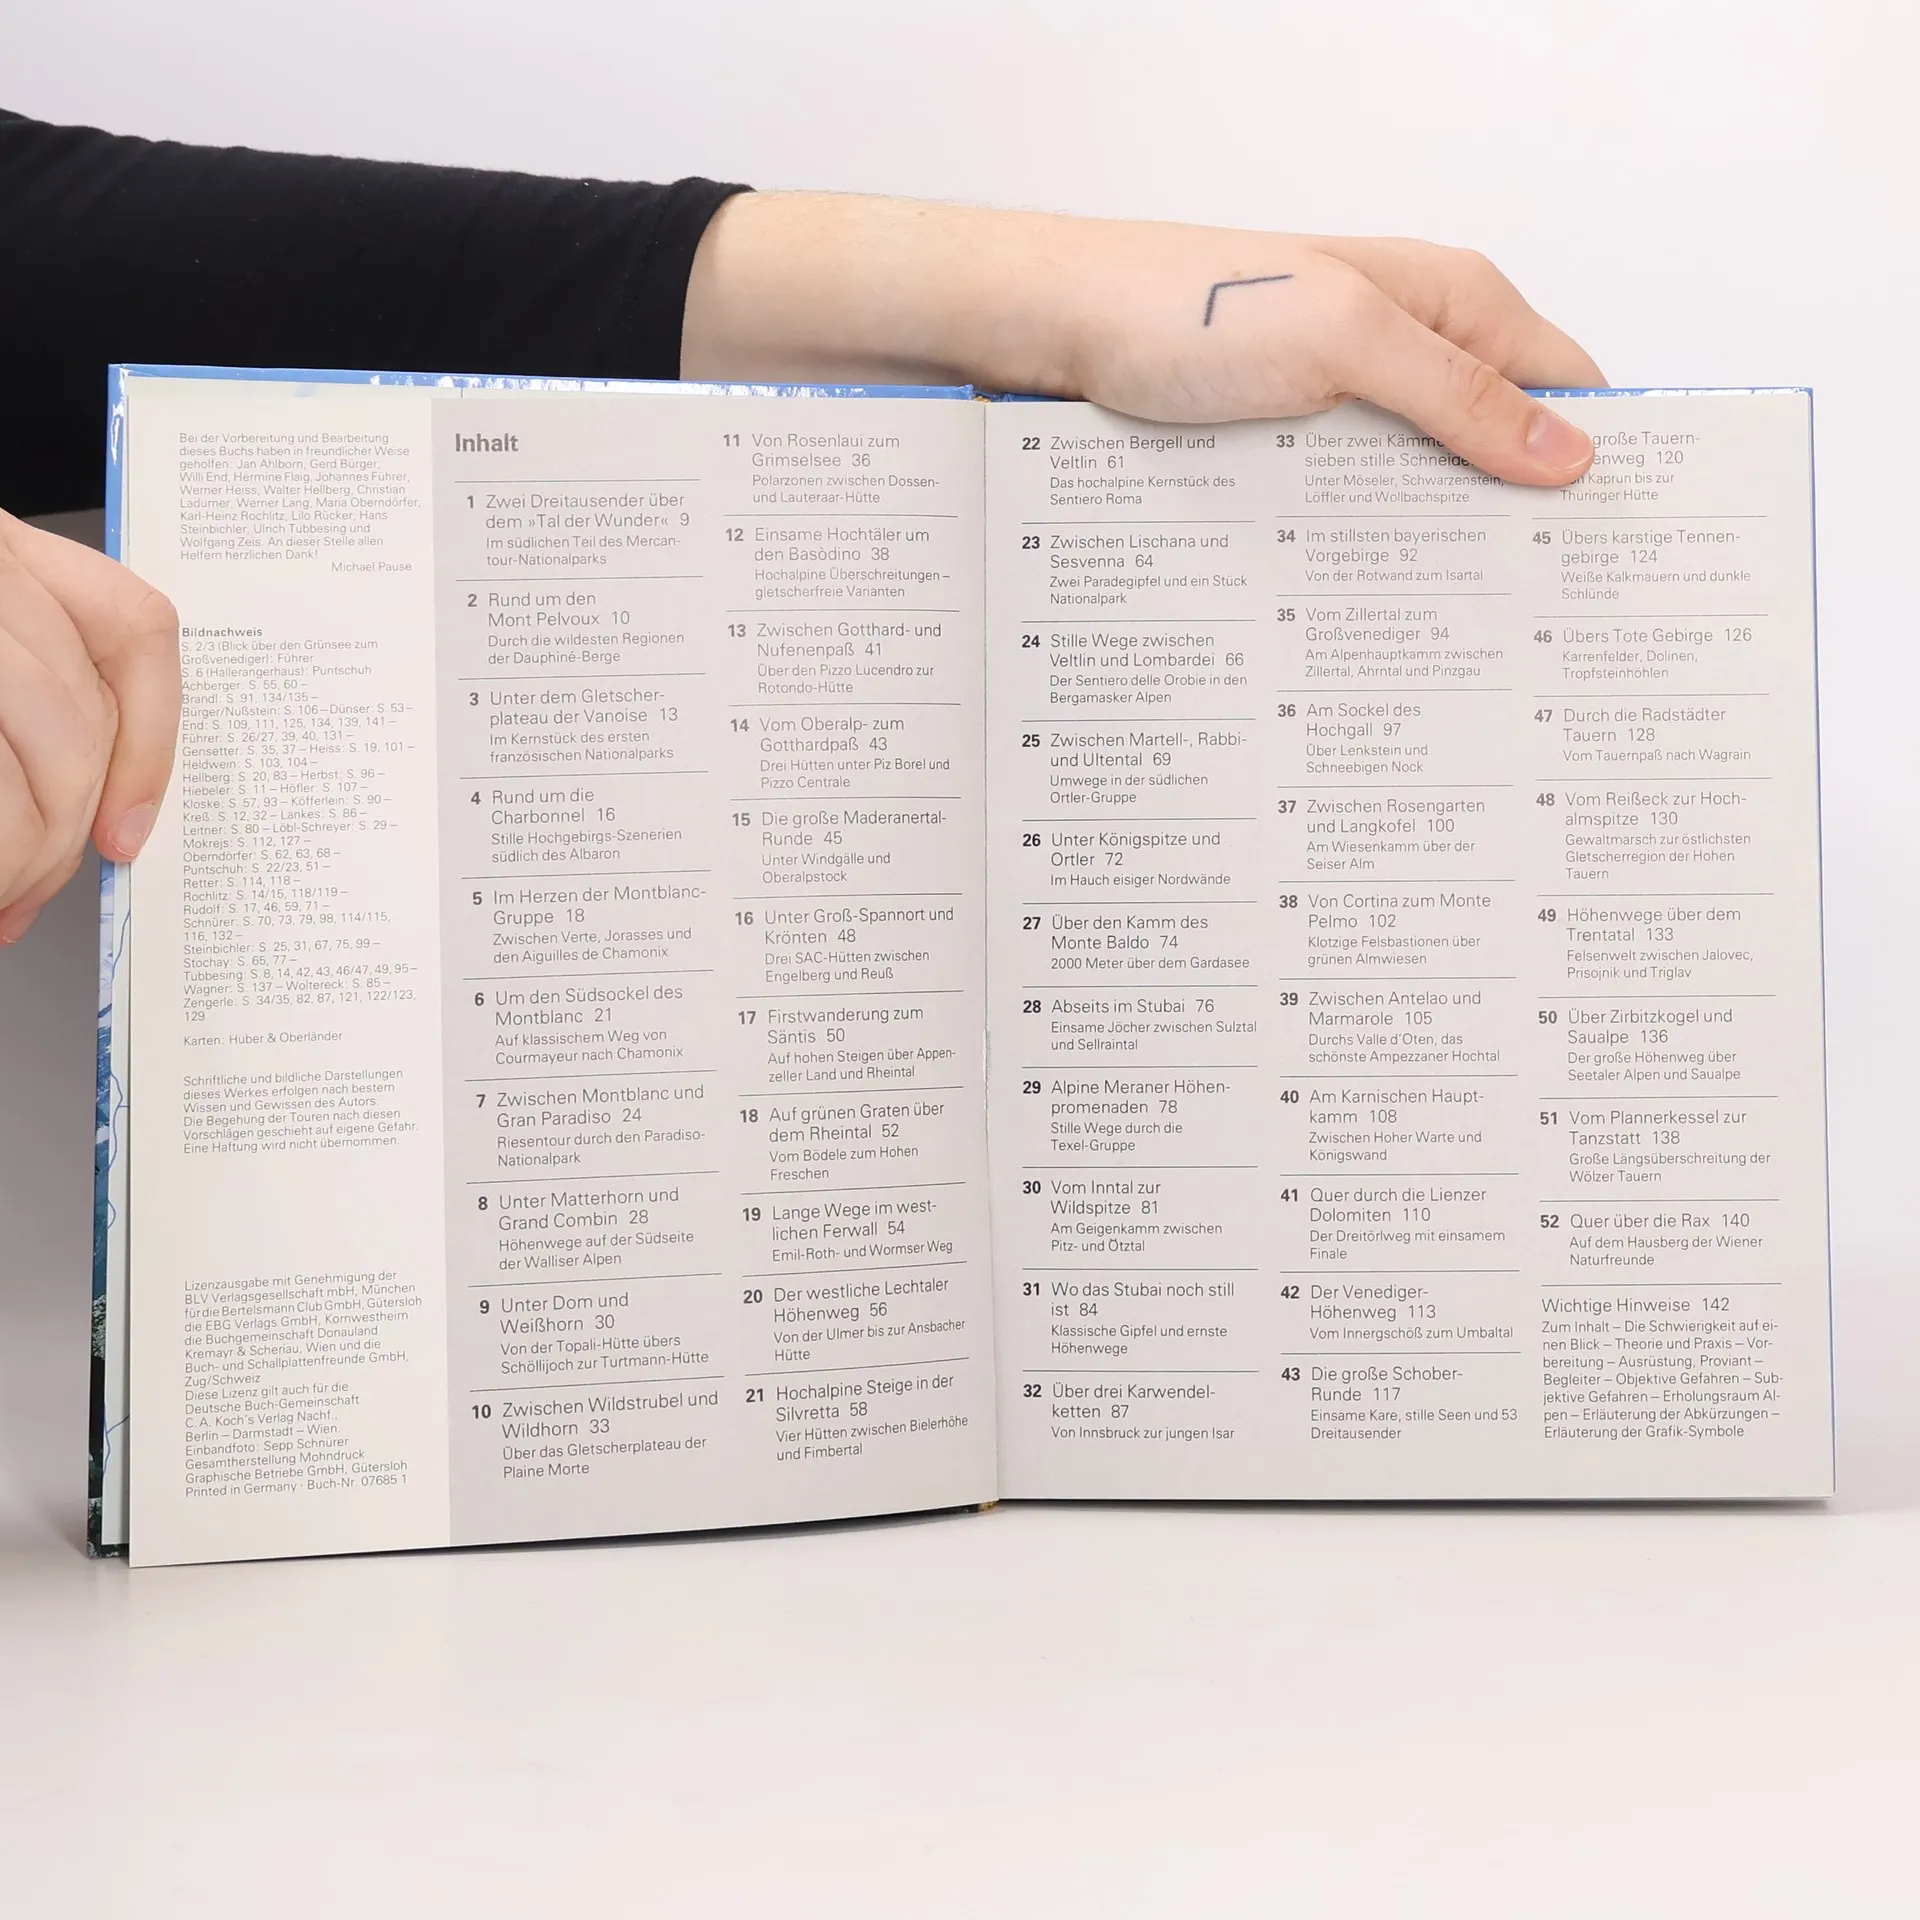 Bei der Vorbereitung und Bearbeitung
dieses Buchs haben in freundlicher Weise
geholfen: Jan Ahlborn, Gerd Bürger,
Willi End, Hermine Flaig, Johannes Führer,
Werner Heiss, Walter Hellberg, Christian
Ladurner, Werner Lang, Maria Oberndörfer,
Karl-Heinz Rochlitz, Lilo Rücker, Hans
Steinbichler, Ulrich Tubbesing und
Wolfgang Zeis. An dieser Stelle allen
Helfern herzlichen Dank!
Michael Pause
Bildnachweis
S. 2/3 (Blick über den Grünsee zum
Großvenediger): Führer
S. 6 (Hallerangerhaus): Puntschuh
Achberger: S. 55, 60 –
Brandl: S. 91, 134/135 –
Bürger/Nußstein: S. 106 – Dünser: S. 53 –
End: S. 109, 111, 125, 134, 139, 141 –
Führer: S. 26/27, 39, 40, 131 –
Gensetter: S. 35, 37 – Heiss: S. 19, 101 –
Heldwein: S. 103, 104 –
Hellberg: S. 20, 83 – Herbst: S. 96 –
Hiebeler: S. 11 – Höfler: S. 107 –
Kloske: S. 57, 93 – Köfferlein: S. 90 –
Kreß: S. 12, 32 – Lankes: S. 86 –
Leitner: S. 80 – Löbl-Schreyer: S. 29 –
Mokrejs: S. 112, 127 –
Oberndörfer: S. 62, 63, 68 –
Puntschuh: S. 22/23, 51 –
Retter: S. 114, 118 –
Rochlitz: S. 14/15, 118/119 –
Rudolf: S. 17, 46, 59, 71 –
Schnürer: S. 70, 73, 79, 98, 114/115,
116, 132 –
Steinbichler: S. 25, 31, 67, 75, 99 –
Stochay: S. 65, 77 –
Tubbesing: S. 8, 14, 42, 43, 46/47, 49, 95 –
Wagner: S. 137 – Woltereck: S. 85 –
Zengerle: S. 34/35, 82, 87, 121, 122/123,
129
Karten: Huber & Oberländer
Schriftliche und bildliche Darstellungen
dieses Werkes erfolgen nach bestem
Wissen und Gewissen des Autors.
Die Begehung der Touren nach diesen
Vorschlägen geschieht auf eigene Gefahr.
Eine Haftung wird nicht übernommen.
Lizenzausgabe mit Genehmigung der
BLV Verlagsgesellschaft mbH, München
für die Bertelsmann Club GmbH, Gütersloh
die EBG Verlags GmbH, Kornwestheim
die Buchgemeinschaft Donauland
Kremayr & Scheriau, Wien und die
Buch- und Schallplattenfreunde GmbH,
Zug/Schweiz
Diese Lizenz gilt auch für die
Deutsche Buch-Gemeinschaft
C. A. Koch's Verlag Nachf.,
Berlin – Darmstadt – Wien.
Einbandfoto: Sepp Schnürer
Gesamtherstellung Mohndruck
Graphische Betriebe GmbH, Gütersloh
Printed in Germany · Buch-Nr. 07685 1
Inhalt
1 Zwei Dreitausender über
dem »Tal der Wunder« 9
Im südlichen Teil des Mercan-
tour-Nationalparks
2 Rund um den
Mont Pelvoux 10
Durch die wildesten Regionen
der Dauphiné-Berge
3 Unter dem Gletscher-
plateau der Vanoise 13
Im Kernstück des ersten
französischen Nationalparks
4 Rund um die
Charbonnel 16
Stille Hochgebirgs-Szenerien
südlich des Albaron
5 Im Herzen der Montblanc-
Gruppe 18
Zwischen Verte, Jorasses und
den Aiguilles de Chamonix
6 Um den Südsockel des
Montblanc 21
Auf klassischem Weg von
Courmayeur nach Chamonix
7 Zwischen Montblanc und
Gran Paradiso 24
Riesentour durch den Paradiso-
Nationalpark
8 Unter Matterhorn und
Grand Combin 28
Höhenwege auf der Südseite
der Walliser Alpen
9 Unter Dom und
Weißhorn 30
Von der Topali-Hütte übers
Schöllijoch zur Turtmann-Hütte
10 Zwischen Wildstrubel und
Wildhorn 33
Über das Gletscherplateau der
Plaine Morte
11 Von Rosenlaui zum
Grimselsee 36
Polarzonen zwischen Dossen-
und Lauteraar-Hütte
12 Einsame Hochtäler um
den Basòdino 38
Hochalpine Überschreitungen –
gletscherfreie Varianten
13 Zwischen Gotthard- und
Nufenenpaß 41
Über den Pizzo Lucendro zur
Rotondo-Hütte
14 Vom Oberalp- zum
Gotthardpaß 43
Drei Hütten unter Piz Borel und
Pizzo Centrale
15 Die große Maderanertal-
Runde 45
Unter Windgälle und
Oberalpstock
16 Unter Groß-Spannort und
Krönten 48
Drei SAC-Hütten zwischen
Engelberg und Reuß
17 Firstwanderung zum
Säntis 50
Auf hohen Steigen über Appen-
zeller Land und Rheintal
18 Auf grünen Graten über
dem Rheintal 52
Vom Bödele zum Hohen
Freschen
19 Lange Wege im west-
lichen Ferwall 54
Emil-Roth- und Wormser Weg
20 Der westliche Lechtaler
Höhenweg 56
Von der Ulmer bis zur Ansbacher
Hütte
21 Hochalpine Steige in der
Silvretta 58
Vier Hütten zwischen Bielerhöhe
und Fimbertal
22 Zwischen Bergell und
Veltlin 61
Das hochalpine Kernstück des
Sentiero Roma
23 Zwischen Lischana und
Sesvenna 64
Zwei Paradegipfel und ein Stück
Nationalpark
24 Stille Wege zwischen
Veltlin und Lombardei 66
Der Sentiero delle Orobie in den
Bergamasker Alpen
25 Zwischen Martell-, Rabbi-
und Ultental 69
Umwege in der südlichen
Ortler-Gruppe
26 Unter Königspitze und
Ortler 72
Im Hauch eisiger Nordwände
27 Über den Kamm des
Monte Baldo 74
2000 Meter über dem Gardasee
28 Abseits im Stubai 76
Einsame Jöcher zwischen Sulztal
und Sellraintal
29 Alpine Meraner Höhen-
promenaden 78
Stille Wege durch die
Texel-Gruppe
30 Vom Inntal zur
Wildspitze 81
Am Geigenkamm zwischen
Pitz- und Ötztal
31 Wo das Stubai noch still
ist 84
Klassische Gipfel und ernste
Höhenwege
32 Über drei Karwendel-
ketten 87
Von Innsbruck zur jungen Isar
33 Über zwei
sieben stille
Unter Möseler, Schwarzenstein,
Löffler und Wollbachspitze
34 Im stillsten bayerischen
Vorgebirge 92
Von der Rotwand zum Isartal
35 Vom Zillertal zum
Großvenediger 94
Am Alpenhauptkamm zwischen
Zillertal, Ahrntal und Pinzgau
36 Am Sockel des
Hochgall 97
Über Lenkstein und
Schneebigen Nock
37 Zwischen Rosengarten
und Langkofel 100
Am Wiesenkamm über der
Seiser Alm
38 Von Cortina zum Monte
Pelmo 102
Klotzige Felsbastionen über
grünen Almwiesen
39 Zwischen Antelao und
Marmarole 105
Durchs Valle d'Oten, das
schönste Ampezzaner Hochtal
40 Am Karnischen Haupt-
kamm 108
Zwischen Hoher Warte und
Königswand
41 Quer durch die Lienzer
Dolomiten 110
Der Dreitörlweg mit einsamem
Finale
42 Der Venediger-
Höhenweg 113
Vom Innergschöß zum Umbaltal
43 Die große Schober-
Runde 117
Einsame Kare, stille Seen und 53
Dreitausender
große Tauern-
120
Kaprun bis zur
Thüringer Hütte
45 Übers karstige Tennen-
gebirge 124
Weiße Kalkmauern und dunkle
Schlünde
46 Übers Tote Gebirge 126
Karrenfelder, Dolinen,
Tropfsteinhöhlen
47 Durch die Radstädter
Tauern 128
Vom Tauernpaß nach Wagrain
48 Vom Reißeck zur Hoch-
almspitze 130
Gewaltmarsch zur östlichsten
Gletscherregion der Hohen
Tauern
49 Höhenwege über dem
Trentatal 133
Felsenwelt zwischen Jalovec,
Prisojnik und Triglav
50 Über Zirbitzkogel und
Saualpe 136
Der große Höhenweg über
Seetaler Alpen und Saualpe
51 Vom Plannerkessel zur
Tanzstatt 138
Große Längsüberschreitung der
Wölzer Tauern
52 Quer über die Rax 140
Auf dem Hausberg der Wiener
Naturfreunde
Wichtige Hinweise 142
Zum Inhalt – Die Schwierigkeit auf ei-
nen Blick – Theorie und Praxis – Vor-
bereitung – Ausrüstung, Proviant –
Begleiter – Objektive Gefahren – Sub-
jektive Gefahren – Erholungsraum Al-
pen – Erläuterung der Abkürzungen –
Erläuterung der Grafik-Symbole